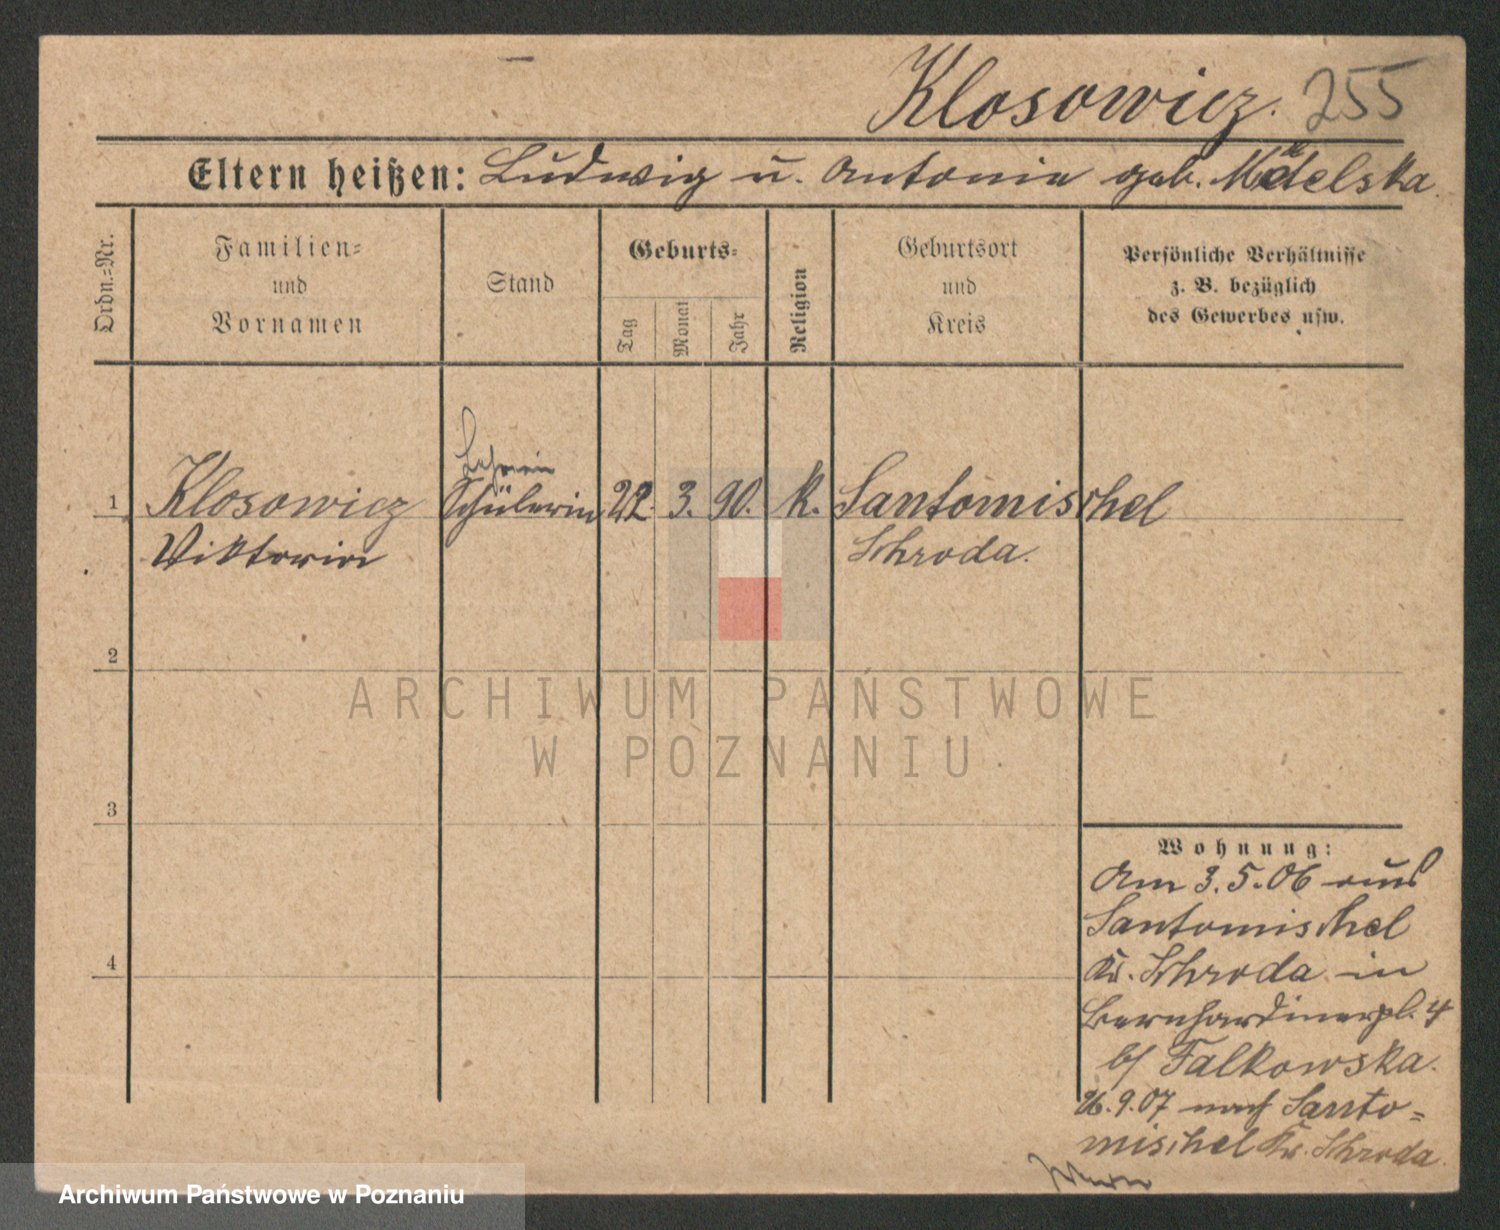 Klosowicz. 255
Eltern heißen: Ludwig u. Antonie geb. Madelska.
Ordn.=Nr.
Familien=
und
Vornamen
Stand
Geburts=
Tag
Monat
Jahr
Religion
Geburtsort
und
Kreis
Persönliche Verhältnisse
z. B. bezüglich
des Gewerbes usw.
1 Klosowicz Schülerin 22. 3. 90. k. Santomischel
Viktoria Schroda.
2
3
4
Wohnung:
Am 3.5.06 aus
Santomischel
Kr. Schroda in
Bernhardinerpl. 4
b/ Falkowska.
26.9.07 nach Santo=
mischel Kr. Schroda.
ARCHIWUM PAŃSTWOWE
W POZNANIU
Archiwum Państwowe w Poznaniu